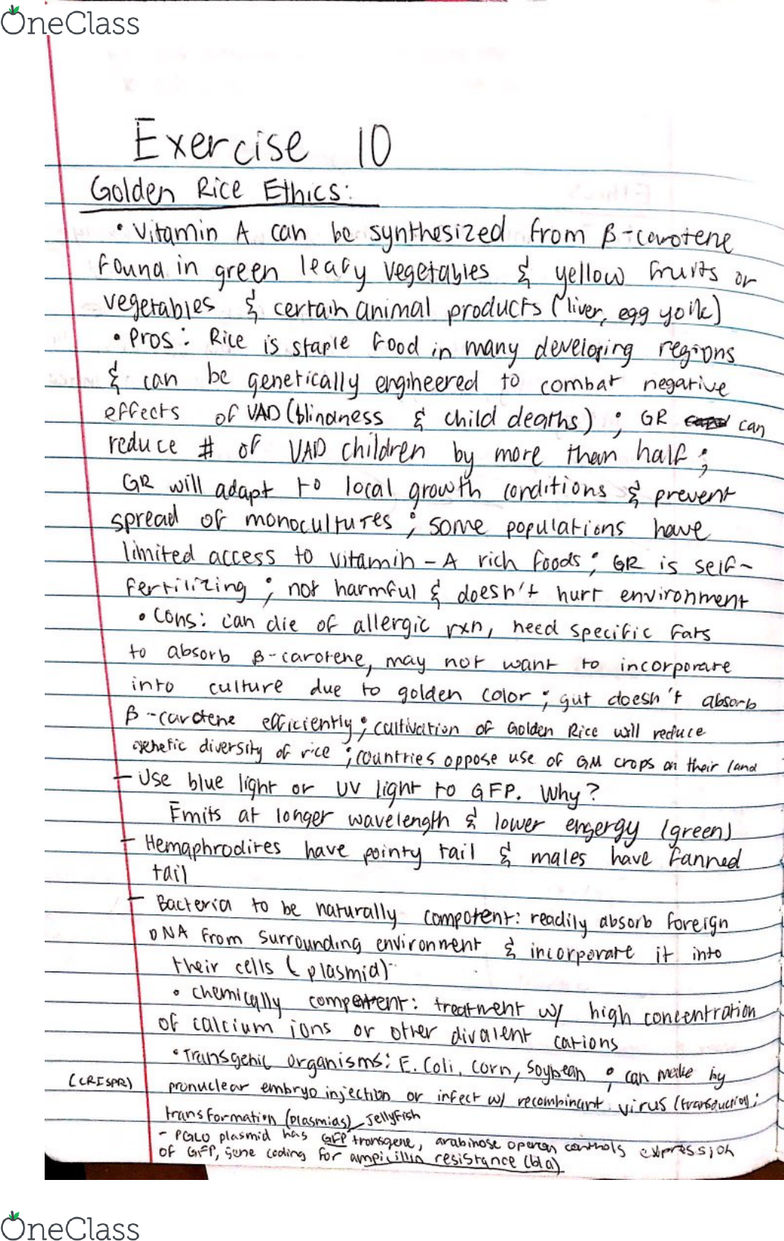 OneClass
Exercise 10
Golden Rice Ethics:
• Vitamin A can be synthesized from β-carotene
found in green leafy vegetables & yellow fruits or
vegetables & certain animal products (liver, egg yolk)
• Pros: Rice is staple food in many developing regions
& can be genetically engineered to combat negative
effects of VAD (blindness & child deaths) ; GR can
reduce # of VAD children by more than half ;
GR will adapt to local growth conditions & prevent
spread of monocultures ; some populations have
limited access to vitamin-A rich foods ; GR is self-
fertilizing ; not harmful & doesn't hurt environment
• Cons: can die of allergic rxn, need specific fats
to absorb β-carotene, may not want to incorporate
into culture due to golden color ; gut doesn't absorb
β-carotene efficiently ; cultivation of Golden Rice will reduce
genetic diversity of rice ; countries oppose use of GM crops on their land
- Use blue light or UV light to GFP. Why?
Emits at longer wavelength & lower engergy (green)
- Hemaphrodites have pointy tail & males have fanned
tail
- Bacteria to be naturally competent: readily absorb foreign
DNA from surrounding environment & incorporate it into
their cells (plasmid)
• Chemically competent: treatment w/ high concentration
of calcium ions or other divalent cations
• Transgenic organisms: E. Coli, corn, soybean ; can make by
(CRISPR) pronuclear embryo injection or infect w/ recombinant virus (transduction) ;
transformation (plasmids) Jellyfish
- PGLO plasmid has GFP transgene, arabinose operon controls expression
of GFP, gene coding for ampicillin resistance (bla)
OneClass